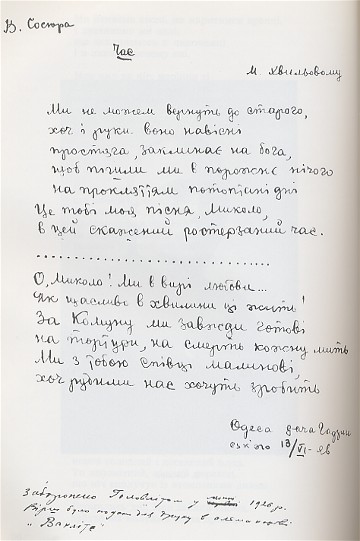 В. Сосюра
Час
М. Хвильовому
Ми не можем вернуть до старого,
хоч і руки воно навісні
простяга, заклинає на бога,
щоб пішли ми в порожнє нічого
на прокляттям потоптані дні
Це тобі моя пісня, Миколо,
в цей скажений розтерзаний час.
О, Миколо! Ми в вирі любови...
Як щасливо в хвилини ці жить!
За Комуну ми завжди готові
на тортури, на смерть кожну мить
Ми з тобою співці малинові,
хоч рудими нас хочуть зробить
Одеса дача
13/VI-
Заборонено Головлітом у 1926 р.
Вірш було подано для друку в альманахові
"Вапліте"